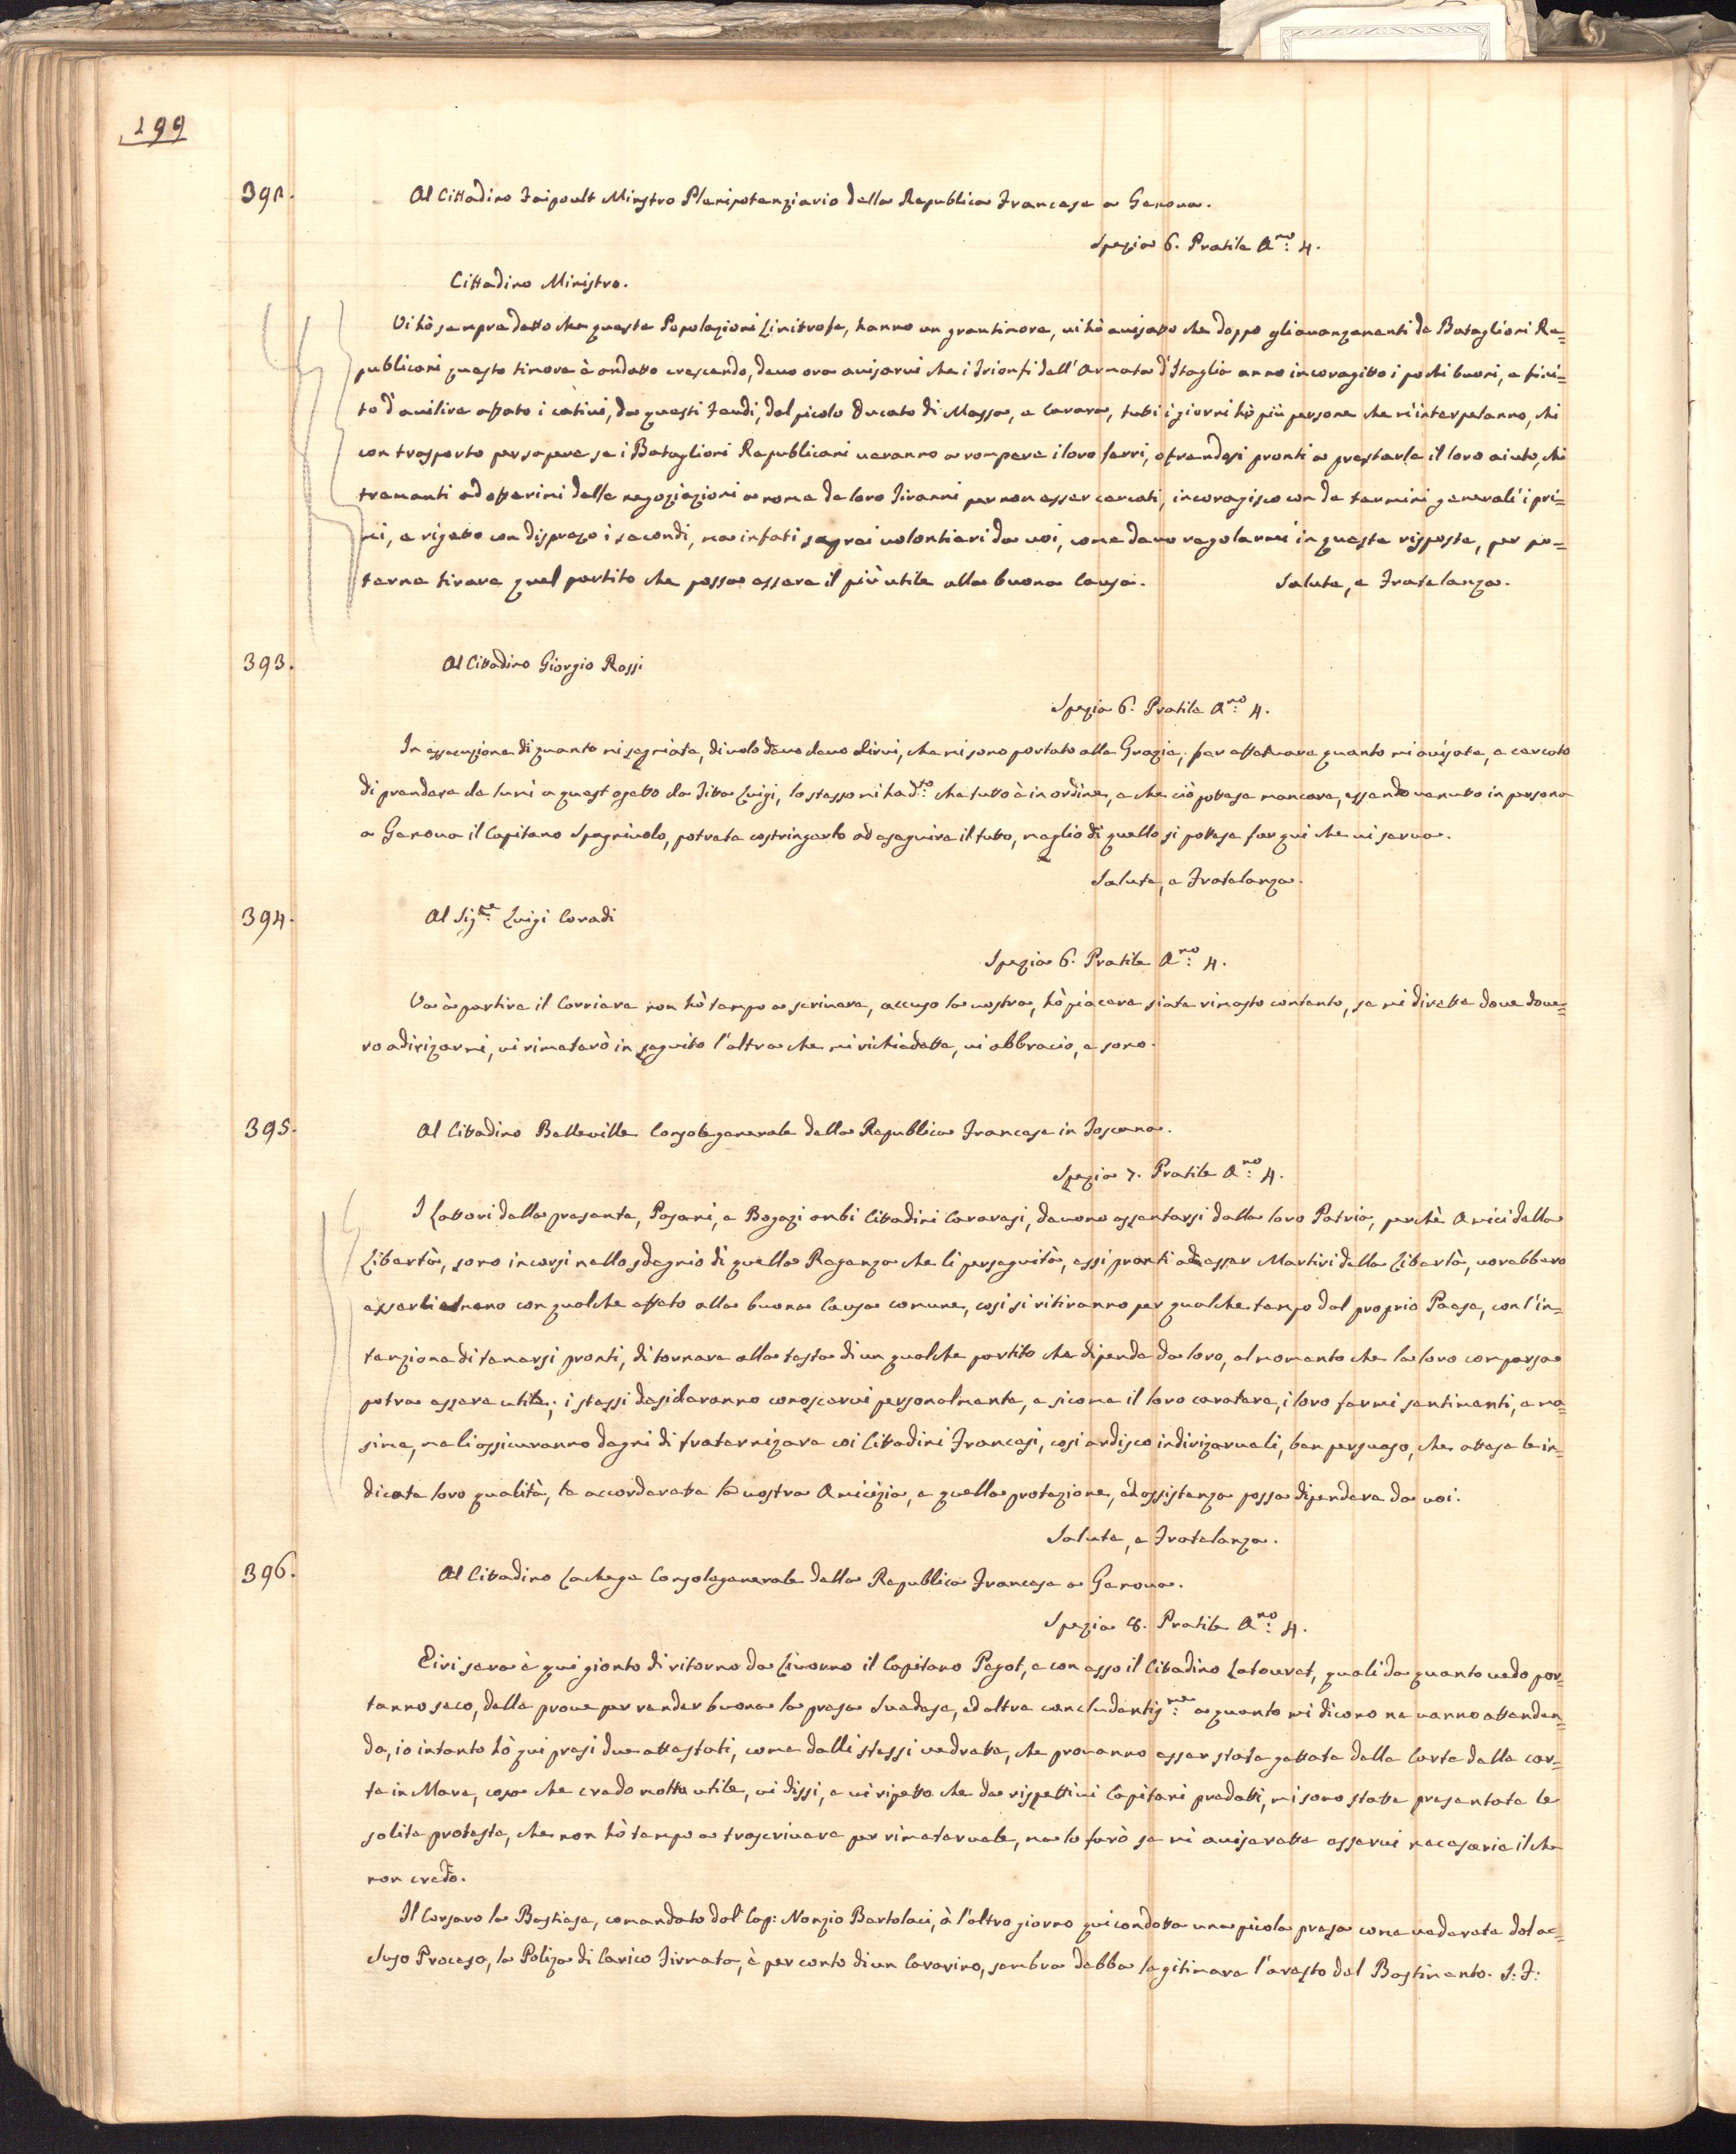 199
391.
Al Cittadino Faipoult Ministro Plenipotenziario della Republica Francese a Genova.
Spezia 6. Pratile A.no 4.
Cittadino Ministro.
Vi hò sempre detto che queste Popolazioni Limitrofe, hanno un gran timore, vi hò avisatto che doppo gli avanzamenti de Bataglioni Re=
publicani questo timore è andatto crescendo, devo ora avisarvi che i Trionfi dell'Armata d'Itaglia anno incoragitto i pochi buoni, e fini=
to d'avilire affato i cativi, da questi Feudi, dal picolo Ducato di Massa, e Carara, tutti i giorni hò più persone che m'interpelanno, chi
con trasporto per sapere se i Bataglioni Republicani veranno a rompere i loro ferri, ofrendosi pronti a prestarle il loro aiuto, chi
tremanti ad offerirmi delle negoziazioni a nome de loro Tiranni per non esser cercati, incoragisco con de termini generali i pri=
mi, e rigetto con disprezo i secondi, ma infati saprei volontieri da voi, come devo regolarmi in queste risposte, per po=
terne tirare quel partito che possa essere il più utile alla buona Causa. Salute, e Fratelanza.
393.
Al Citadino Giorgio Rossi
Spezia 6. Pratile A.no 4.
In essecuzione di quanto mi segniate, di volo devo dirvi, che mi sono portato alle Grazie, per effetuare quanto mi avisate, e cercato
di prendere de lumi a quest ogetto da Luigi, lo stesso mi ha d.to che tutto è in ordine, e che ciò potese mancare, essendo venutto in persona
a Genova il Capitano Spagniuolo, potrete costringerlo ad eseguire il tutto, meglio di quello si potese far qui che vi serva.
Salute, e Fratelanza.
394.
Al Sig.re Luigi Coradi
Spezia 6. Pratile A.no 4.
Va à partire il Corriere non hò tempo a scrivere, accuso la vostra, hò piacere siate rimasto contento, se mi direte dove dove=
ro adirizarmi, vi rimeterò in seguito l'altra che mi richiedette, vi abbracio, e sono.
395.
Al Citadino Belleville Consolegenerale della Republica Francese in Toscana.
Spezia 7. Pratile A.no 4.
I Lattori della presente, Pesani, e Bogazi ambi Citadini Cararesi, devono assentarsi dalla loro Patria, perchè Amici della
Libertà, sono incorsi nello sdegnio di quella Regenza che li perseguità, essi pronti ad esser Martiri della Libertà, vorebbero
esserli almeno con qualche effeto alla buona Causa comune, così si ritiranno per qualche tempo dal proprio Paese, con l'in=
tenzione di tenersi pronti, di tornare alla testa di un qualche partito che dipende da loro, al momento che la loro comparsa
potra essere utile; i stessi desideranno conoscervi personalmente, e sicome il loro caratere, i loro fermi sentimenti, e ma=
sime, me li assicuranno degni di fraternizare coi Citadini Francesi, così ardisco indirizarveli, ben persuaso, che attese le in=
dicate loro qualità, le accorderette la vostra Amicizia, e quella protezione, ed assistenza possa dipendere da voi.
Salute, e Fratelanza.
396.
Al Citadino Lachega Consolegenerale della Republica Francese a Genova.
Spezia 8. Pratile A.no 4.
Eiri sera è qui gionto di ritorno da Livorno il Capitano Pegot, e con esso il Citadino Latouret, quali da quanto vedo por=
tanno seco, delle prove per render buona la presa Suedese, ed altre concludentis.me a quanto mi dicono ne vanno attenden=
do, io intanto hò qui presi due attestati, come dalli stessi vedrette, che provanno esser state gettate delle Carte
te in Mare, cosa che credo molto utile, vi dissi, e vi ripetto che da rispettivi Capitani predatti, mi sono statte presentate le
solite proteste, che non hò tempo a trascrivere per rimetervele, ma lo farò se mi aviserette esservi necesarie il che
non credo.
Il Corsaro la Bastiese, comandato dal Cap: Nonzio Bartolaci, à l'altro giorno qui condotta una picola presa come vederete dal ac=
cluso Proceso, la Poliza di Carico Firmata, è per conto di un Cavarino, sembra debba legitimare l'aresto del Bastimento. S: F: